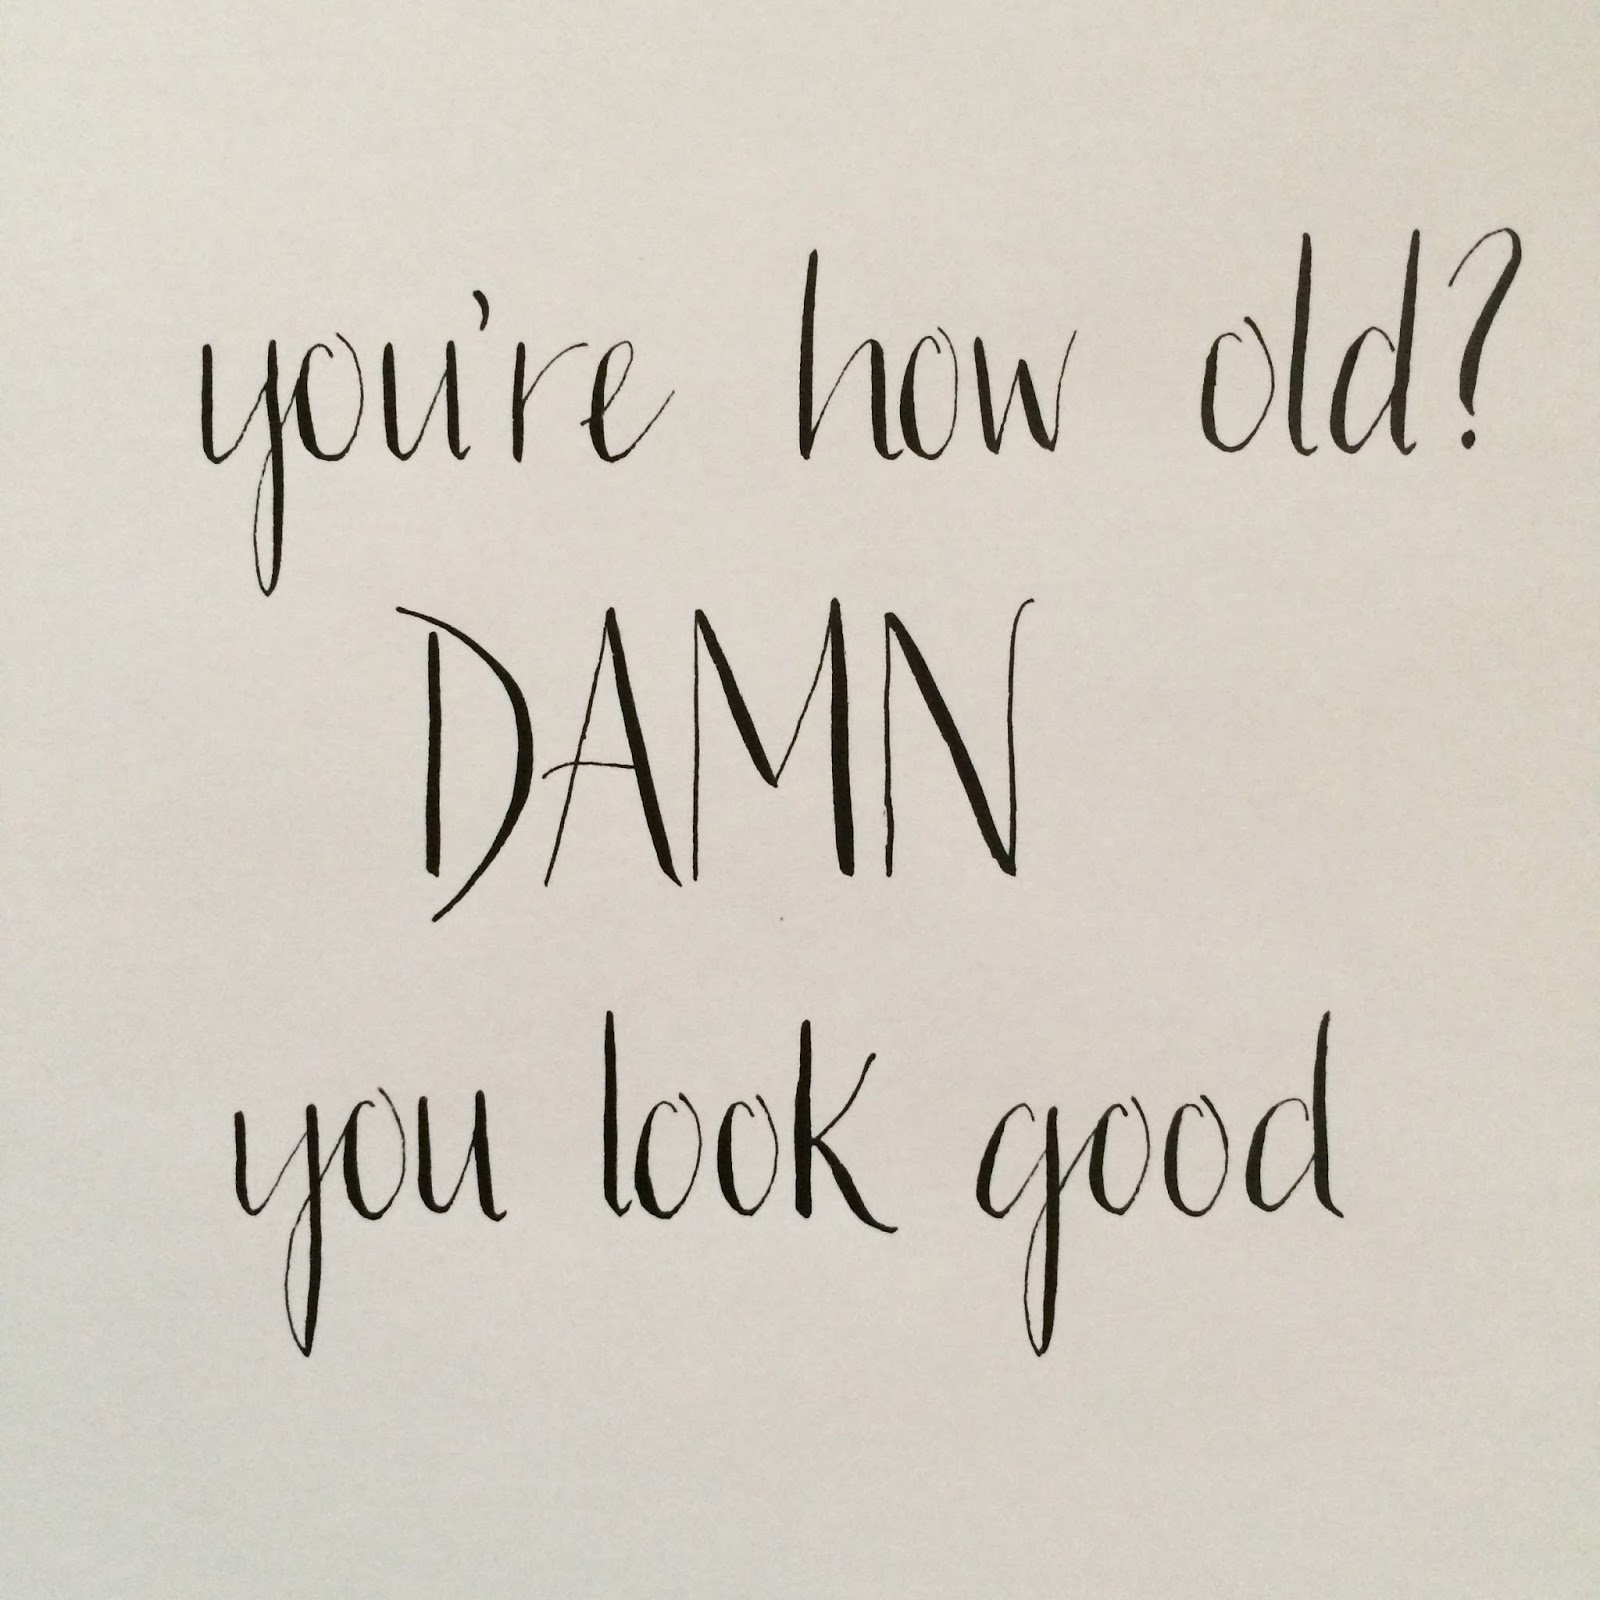 you're how old?
DAMN
you look good